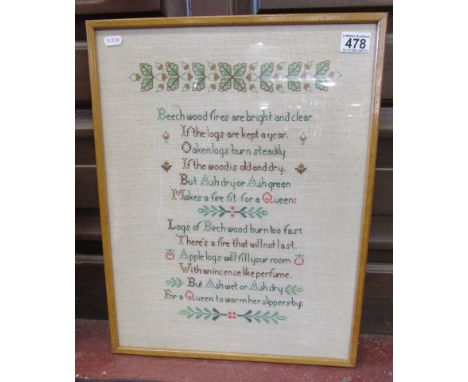 478
Beechwood fires are bright and clear
If the logs are kept a year.
Oaken logs burn steadily
If the wood is old and dry.
But Ash dry or Ash green
Makes a fire fit for a Queen:
Logs of Birch wood burn too fast
There's a fire that will not last.
Apple logs will fill your room
With an incense like perfume.
But Ash wet or Ash dry
For a Queen to warm her slippers by: